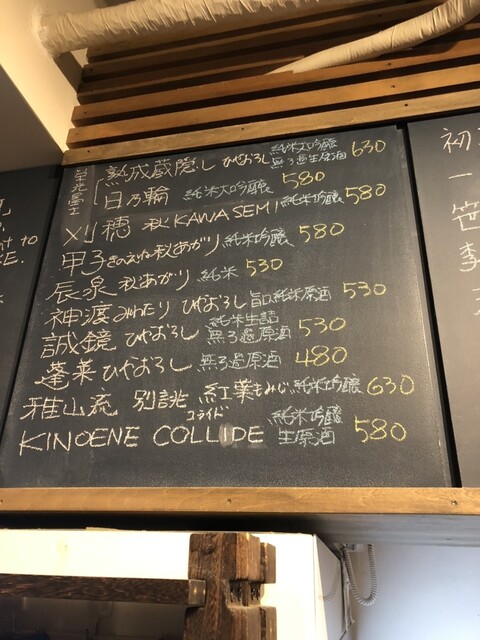 栄光冨士
熟成蔵隠し ひやおろし 純米大吟醸 無ろ過生原酒 630
日乃輪 純米大吟醸 580
刈穂 秋KAWASEMI 純米吟醸 580
甲子 きのえね 秋あがり 純米吟醸 580
辰泉 秋あがり 純米 530
神渡 みわたり ひやおろし 旨口純米原酒 530
誠鏡 ひやおろし 純米生詰 無ろ過原酒 530
蓬莱 ひやおろし 無ろ過原酒 480
雅山流 別誂 紅葉 もみじ 純米吟醸 630
コライド
KINOENE COLLIDE 純米吟醸 生原酒 580
t to
E.
初
一
笹
李